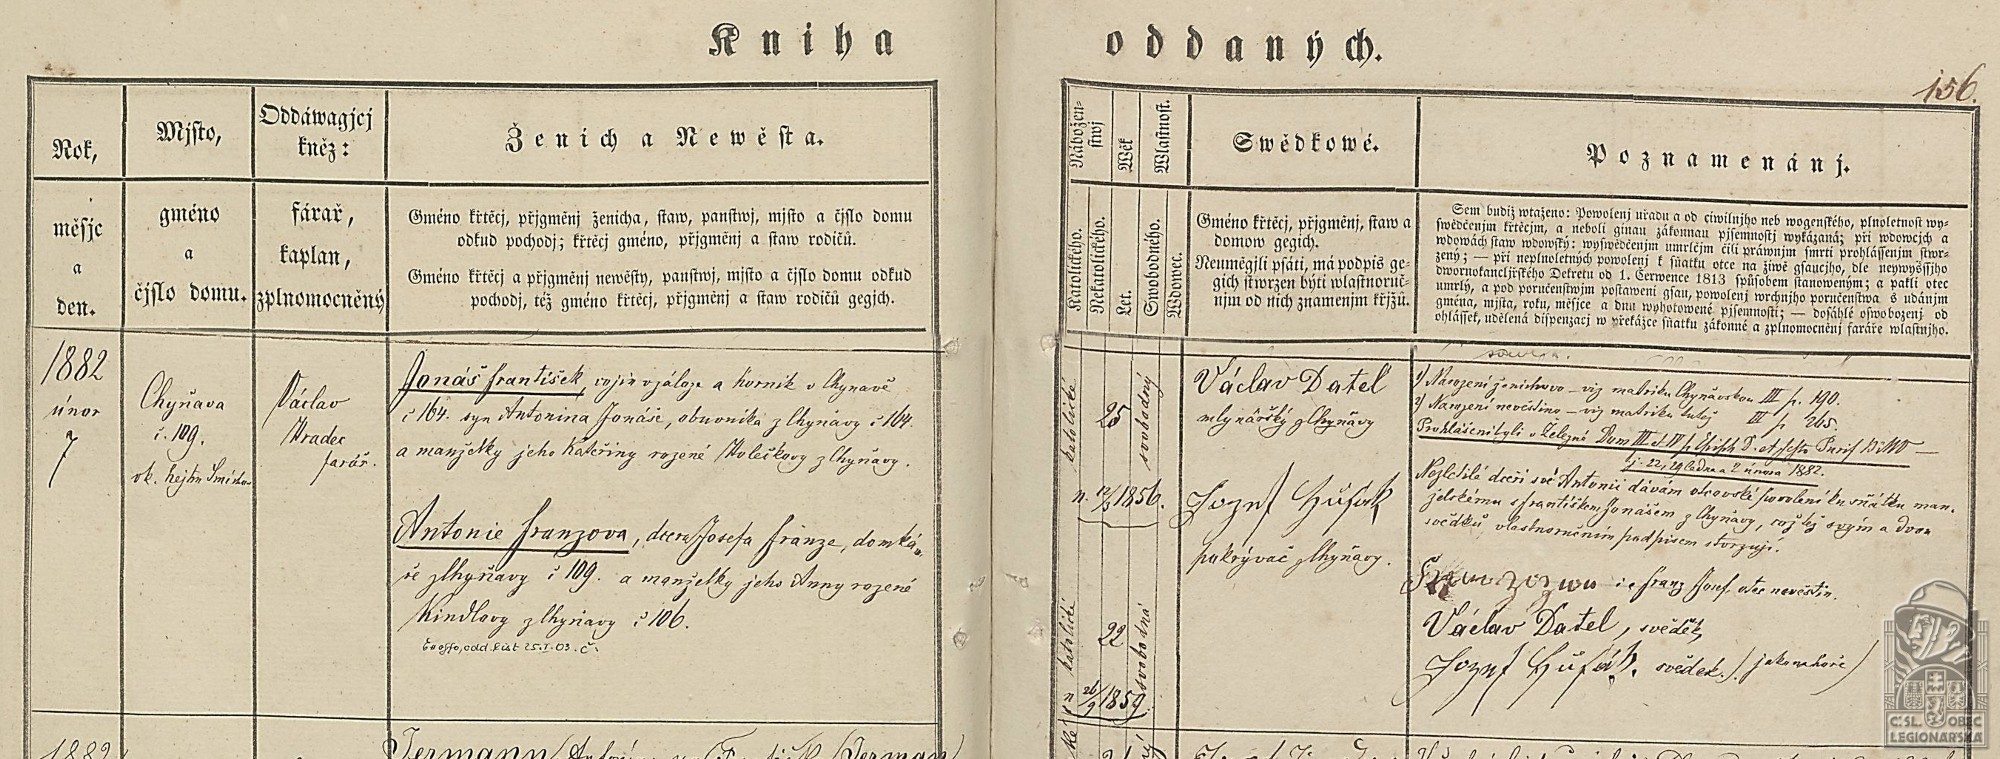 Kniha oddaných.
156.
Rok,
měsjc
a
den.
Mjsto,
gméno
a
čjslo domu.
Oddáwagjcj
kněz:
fárař,
kaplan,
zplnomocněný
Ženich a Newěsta.
Gméno křtěcj, přjgměnj ženicha, staw, panstwj, mjsto a čjslo domu
odkud pochodj; křtěcj gméno, přjgměnj a staw rodičů.
Gméno křtěcj a přjgměnj newěsty, panstwj, mjsto a čjslo domu odkud
pochodj, též gméno křtěcj, přjgměnj a staw rodičů gegich.
Náboženstwj
Katolického.
Nekatolického.
Wěk
Let.
Wlastnost.
Swobodného.
Wdowec.
Swědkowé.
Gméno křtěcj, přjgměnj, staw a
domow gegich.
Neuměgjli psáti, má podpis ge-
gich stwrzen býti wlastnoruč-
njm od nich znamenjm křjžů.
Poznamenánj.
Sem budiž wtaženo: Powolenj uřadu a od ciwilnjho neb wogenského, plnoletnost wy-
swědčenjm křtěcjm, a neboli ginau zákonnau pjsemnostj wykázaná; při wdowcjch a
wdowách staw wdowský: wyswědčenjm umrlčjm čili práwnjm smrti prohlássenjm stwr-
zený; — při neplnoletných powolenj k sňatku otce na žiwě gsaucjho, dle neywyššjho
dwornokancljřského Detretu od 1. Čerwence 1813 spůsobem stanoweným; a pakli otec
umrlý, a pod poručenstwjm postaweni gsau, powolenj wrchnjho poručenstwa s udánjm
gména, mjsta, roku, měsjce a dnu wyhotowené pjsemnosti; — dosáhlé oswobozenj od
ohlássek, udělená dispenzacj w překážce sňatku zákonné a zplnomocněnj faráře wlastnjho.
1882
únor
7
Chyňava
č. 109.
ok. hejtm Smíchov
Václav
Hradec
farář.
Jonáš František, vojín v záloze a horník v Chyňavě
č 164. syn Antonína Jonáše, obuvníka z Chyňavy č 164.
a manželky jeho Kateřiny rozené Holečkovy z Chyňavy.
Antonie Franzova, dcera Josefa Franze, domká-
ře z Chyňavy č 109. a manželky jeho Anny rozené
Kindlovy z Chyňavy č 106.
odd. list 25.I.03. Č.
katolické
25
svobodný
n. 12/3 1856.
katolické
22
svobodná
n 26/9 1859.
Václav Datel
mlynářský z Chyňavy
Jozef Hušák
pokrývač z Chyňavy.
1) Narození ženichovo – viz matriku Chyňavskou III p. 190.
2) Narození nevěstino – viz matriku tutéž III p 265.
Prohlášeni byli v Železné Dom III et IV p. Epiph D. et festo Purif BMV —
j. 22, 29 ledna a 2 února 1882.
Nezletilé dceři své Antonii dávám otcovské svolení ku sňatku man-
želskému s Františkem Jonášem z Chyňavy, což též svým a dvou
svědků vlastnoručním podpisem stvrzuji.
i.e. Franz Josef otec nevěstin.
Václav Datel, svědek,
Jozef Hušák. svědek. (jako nahoře)
1882
ČSL. OBEC
LEGIONÁŘSKÁ